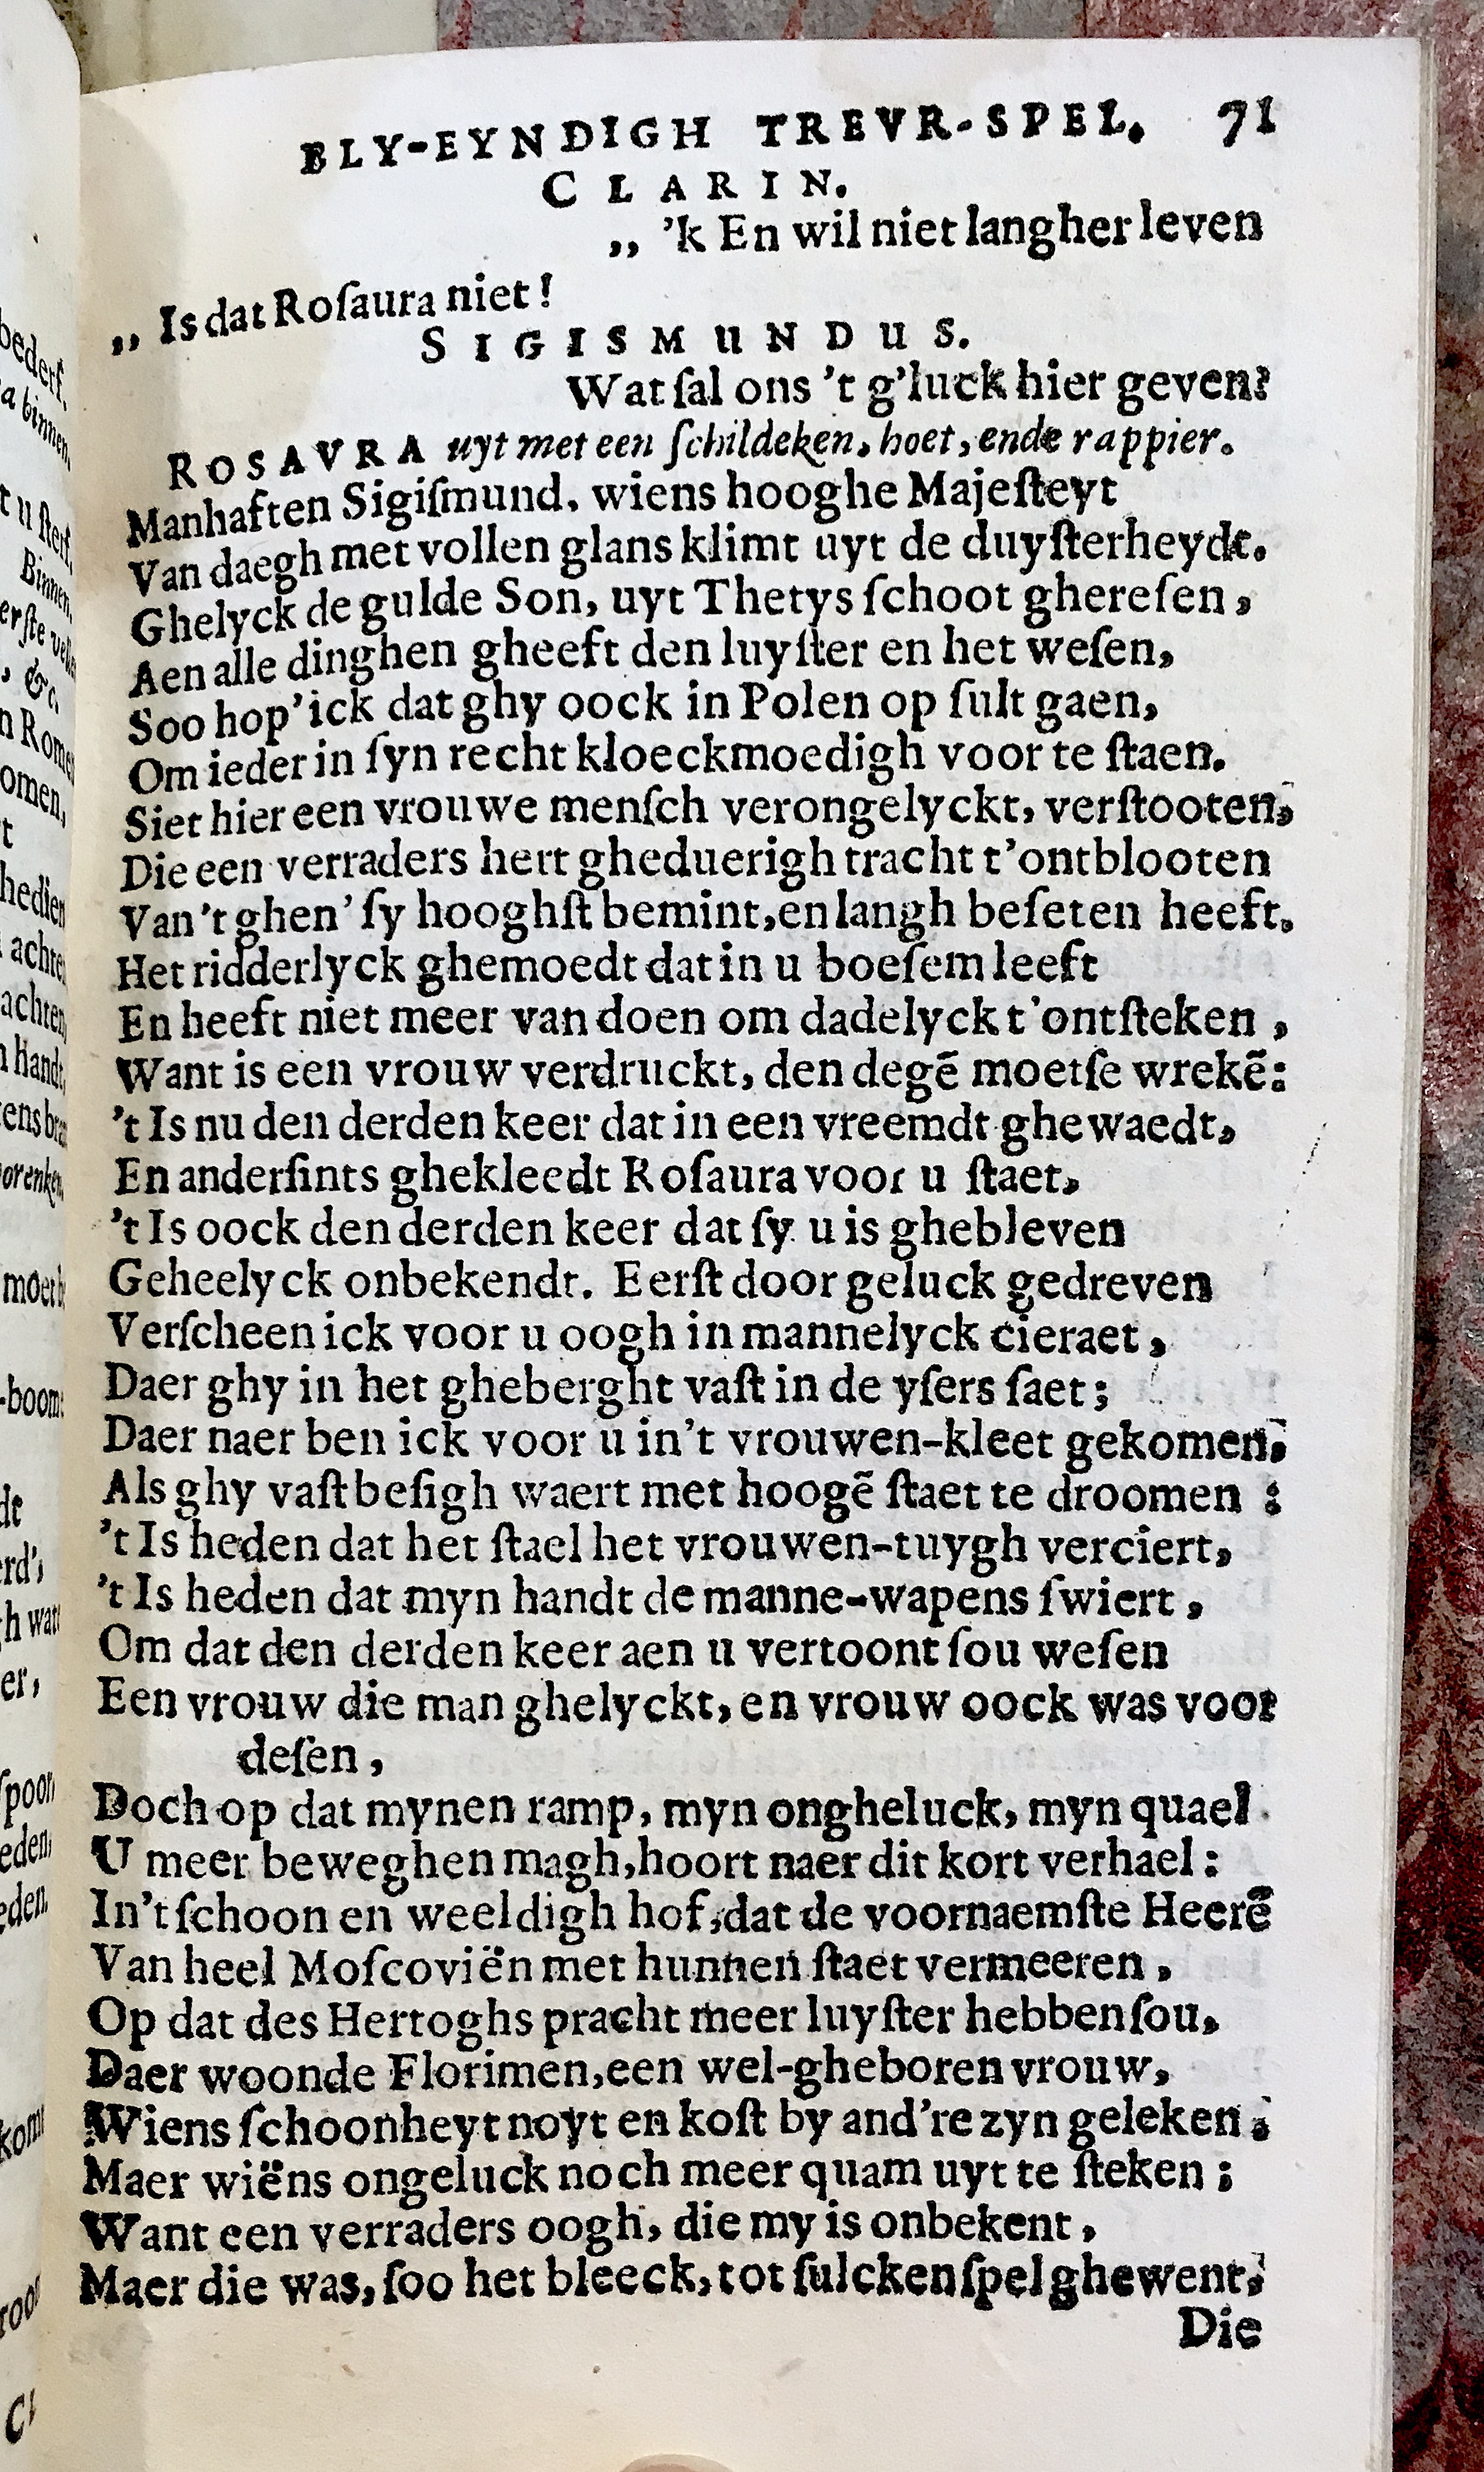 BLY-EYNDIGH TREVR-SPEL. 71
CLARIN.
„ ’k En wil niet langher leven
„ Is dat Roſaura niet!
SIGISMUNDUS.
Wat ſal ons ’t g’luck hier geven?
ROSAVRA uyt met een ſchildeken, hoet, ende rappier.
Manhaften Sigiſmund, wiens hooghe Majeſteyt
Van daegh met vollen glans klimt uyt de duyſterheydt.
Ghelyck de gulde Son, uyt Thetys ſchoot ghereſen,
Aen alle dinghen gheeft den luyſter en het weſen,
Soo hop’ ick dat ghy oock in Polen op ſult gaen,
Om ieder in ſyn recht kloeckmoedigh voor te ſtaen.
Siet hier een vrouwe menſch verongelyckt, verſtooten,
Die een verraders hert gheduerigh tracht t’ontblooten
Van ’t ghen’ ſy hooghſt bemint, en langh beſeten heeft.
Het ridderlyck ghemoedt dat in u boeſem leeft
En heeft niet meer van doen om dadelyck t’ontſteken,
Want is een vrouw verdruckt, den degē moetſe wrekē:
’t Is nu den derden keer dat in een vreemdt ghewaedt,
En anderſints ghekleedt Roſaura voor u ſtaet,
’t Is oock den derden keer dat ſy u is ghebleven
Geheelyck onbekendt. Eerſt door geluck gedreven
Verſcheen ick voor u oogh in mannelyck cieraet,
Daer ghy in het gheberght vaſt in de yſers ſaet;
Daer naer ben ick voor u in’t vrouwen-kleet gekomen,
Als ghy vaſt beſigh waert met hoogē ſtaet te droomen :
’t Is heden dat het ſtael het vrouwen-tuygh verciert,
’t Is heden dat myn handt de manne-wapens ſwiert,
Om dat den derden keer aen u vertoont ſou weſen
Een vrouw die man ghelyckt, en vrouw oock was voor
deſen,
Doch op dat mynen ramp, myn ongheluck, myn quael
U meer beweghen magh, hoort naer dit kort verhael:
In’t ſchoon en weeldigh hof, dat de voornaemſte Heerē
Van heel Moſcoviën met hunnen ſtaet vermeeren,
Op dat des Hertoghs pracht meer luyſter hebben ſou,
Daer woonde Florimen, een wel-gheboren vrouw,
Wiens ſchoonheyt noyt en koſt by and’re zyn geleken;
Maer wiëns ongeluck noch meer quam uyt te ſteken;
Want een verraders oogh, die my is onbekent,
Maer die was, ſoo het bleeck, tot ſulcken ſpel ghewent,
Die